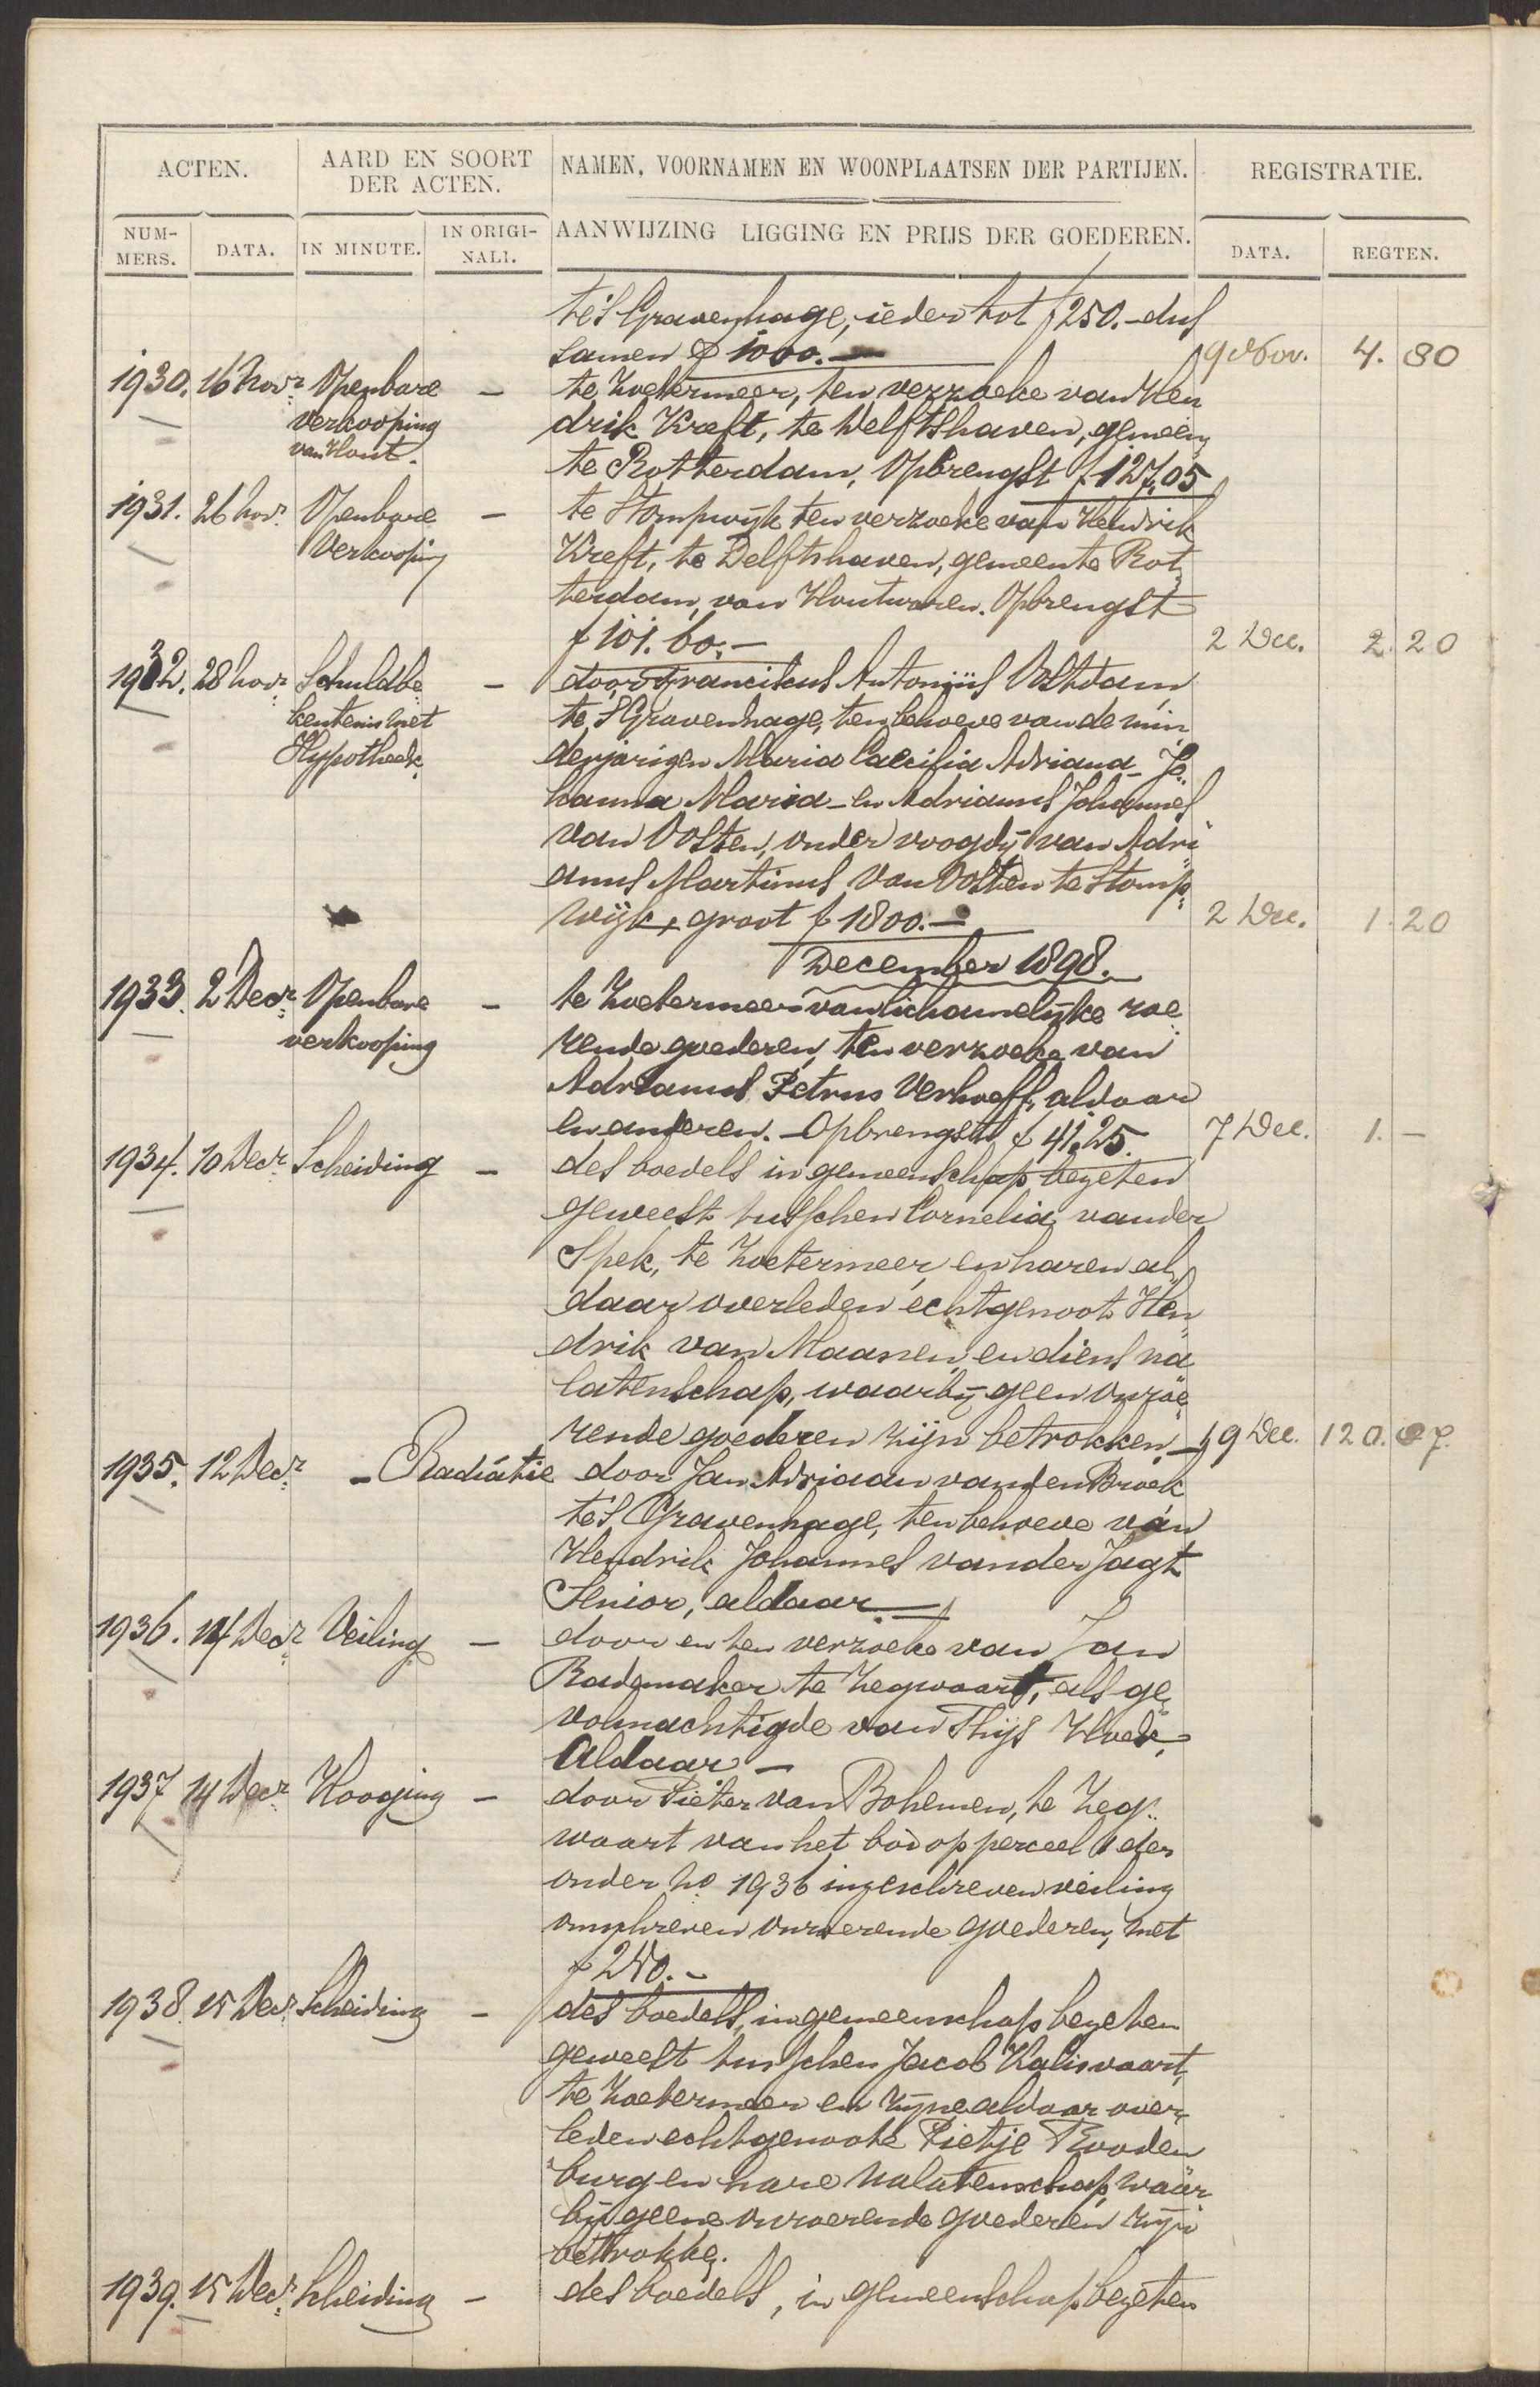 ACTEN. AARD EN SOORT DER ACTEN. NAMEN, VOORNAMEN EN WOONPLAATSEN DER PARTIJEN. REGISTRATIE.
NUM-MERS. DATA. IN MINUTE. IN ORIGI-NALI. AANWIJZING LIGGING EN PRIJS DER GOEDEREN. DATA. REGTEN.
te 's Gravenhage, ieder tot f 250.- dus
samen f 1000.— 9 Nov. 4. 80
1930. 16 Novr. Openbare — te Zoetermeer, ten verzoeke van Hen
verkooping drik Kreft, te Delftshaven, gemeen
van Hout. te Rotterdam, Opbrengst f 127,05
1931. 26 Novr. Openbare — te Stompwijk ten verzoeke van Hendrik
Verkooping Kreft, te Delftshaven, gemeente Rot
terdam, van Houtwaren. Opbrengst
f 101.60.— 2 Dec. 2. 20
1932. 28 Novr. Schuldbe — door Franciscus Antonius Oostdam,
kentenis met te 's Gravenhage, ten behoeve van de min
Hypotheek. derjarigen Maria Caecilia Adriana - Jo
hanna Maria - en Adrianus Johannes
van Oosten, onder voogdij van Adri
anus Martinus van Oosten te Stomp
wijk, groot f 1800.— 2 Dec. 1. 20
December 1898.
1933. 2 Decr. Openbare — te Zoetermeer van lichamelijke roe
verkooping rende goederen, ten verzoeke van
Adrianus Petrus Verhoeff, aldaar
en anderen. - Opbrengst f 41.25. 7 Dec. 1. —
1934. 10 Decr. Scheiding — des boedels in gemeenschap bezeten
geweest tusschen Cornelia van der
Spek, te Zoetermeer, en haren al
daar overleden echtgenoot Hen
drik van Maanen, en diens na
latenschap, waarbij geen onroe
rende goederen zijn betrokken. — 19 Dec. 120. 07.
1935. 12 Decr. — Radiatie door Jan Adriaan van den Broek
te 's Gravenhage, ten behoeve van
Hendrik Johannes van der Jagt
Senior, aldaar. —
1936. 14 Decr. Veiling — door en ten verzoeke van Jan
Rademaker te Zegwaart, als ge
volmachtigde van Thijs Hoek,
Aldaar —
1937 14 Decr. Hooging — door Pieter van Bohemen, te Zeg
waart van het bod op perceel 1 der
onder No 1936 ingeschreven veiling
omschreven onroerende goederen, met
f 210.-
1938. 15 Decr. Scheiding — des boedels, in gemeenschap bezeten
geweest tusschen Jacob Kalisvaart,
te Zoetermeer en zijne aldaar over
leden echtgenoote Pietje Rooden
burg en hare nalatenschap, waar
bij geene onroerende goederen zijn
betrokke.
1939. 15 Decr. Scheiding — des boedels, in gemeenschap bezeten